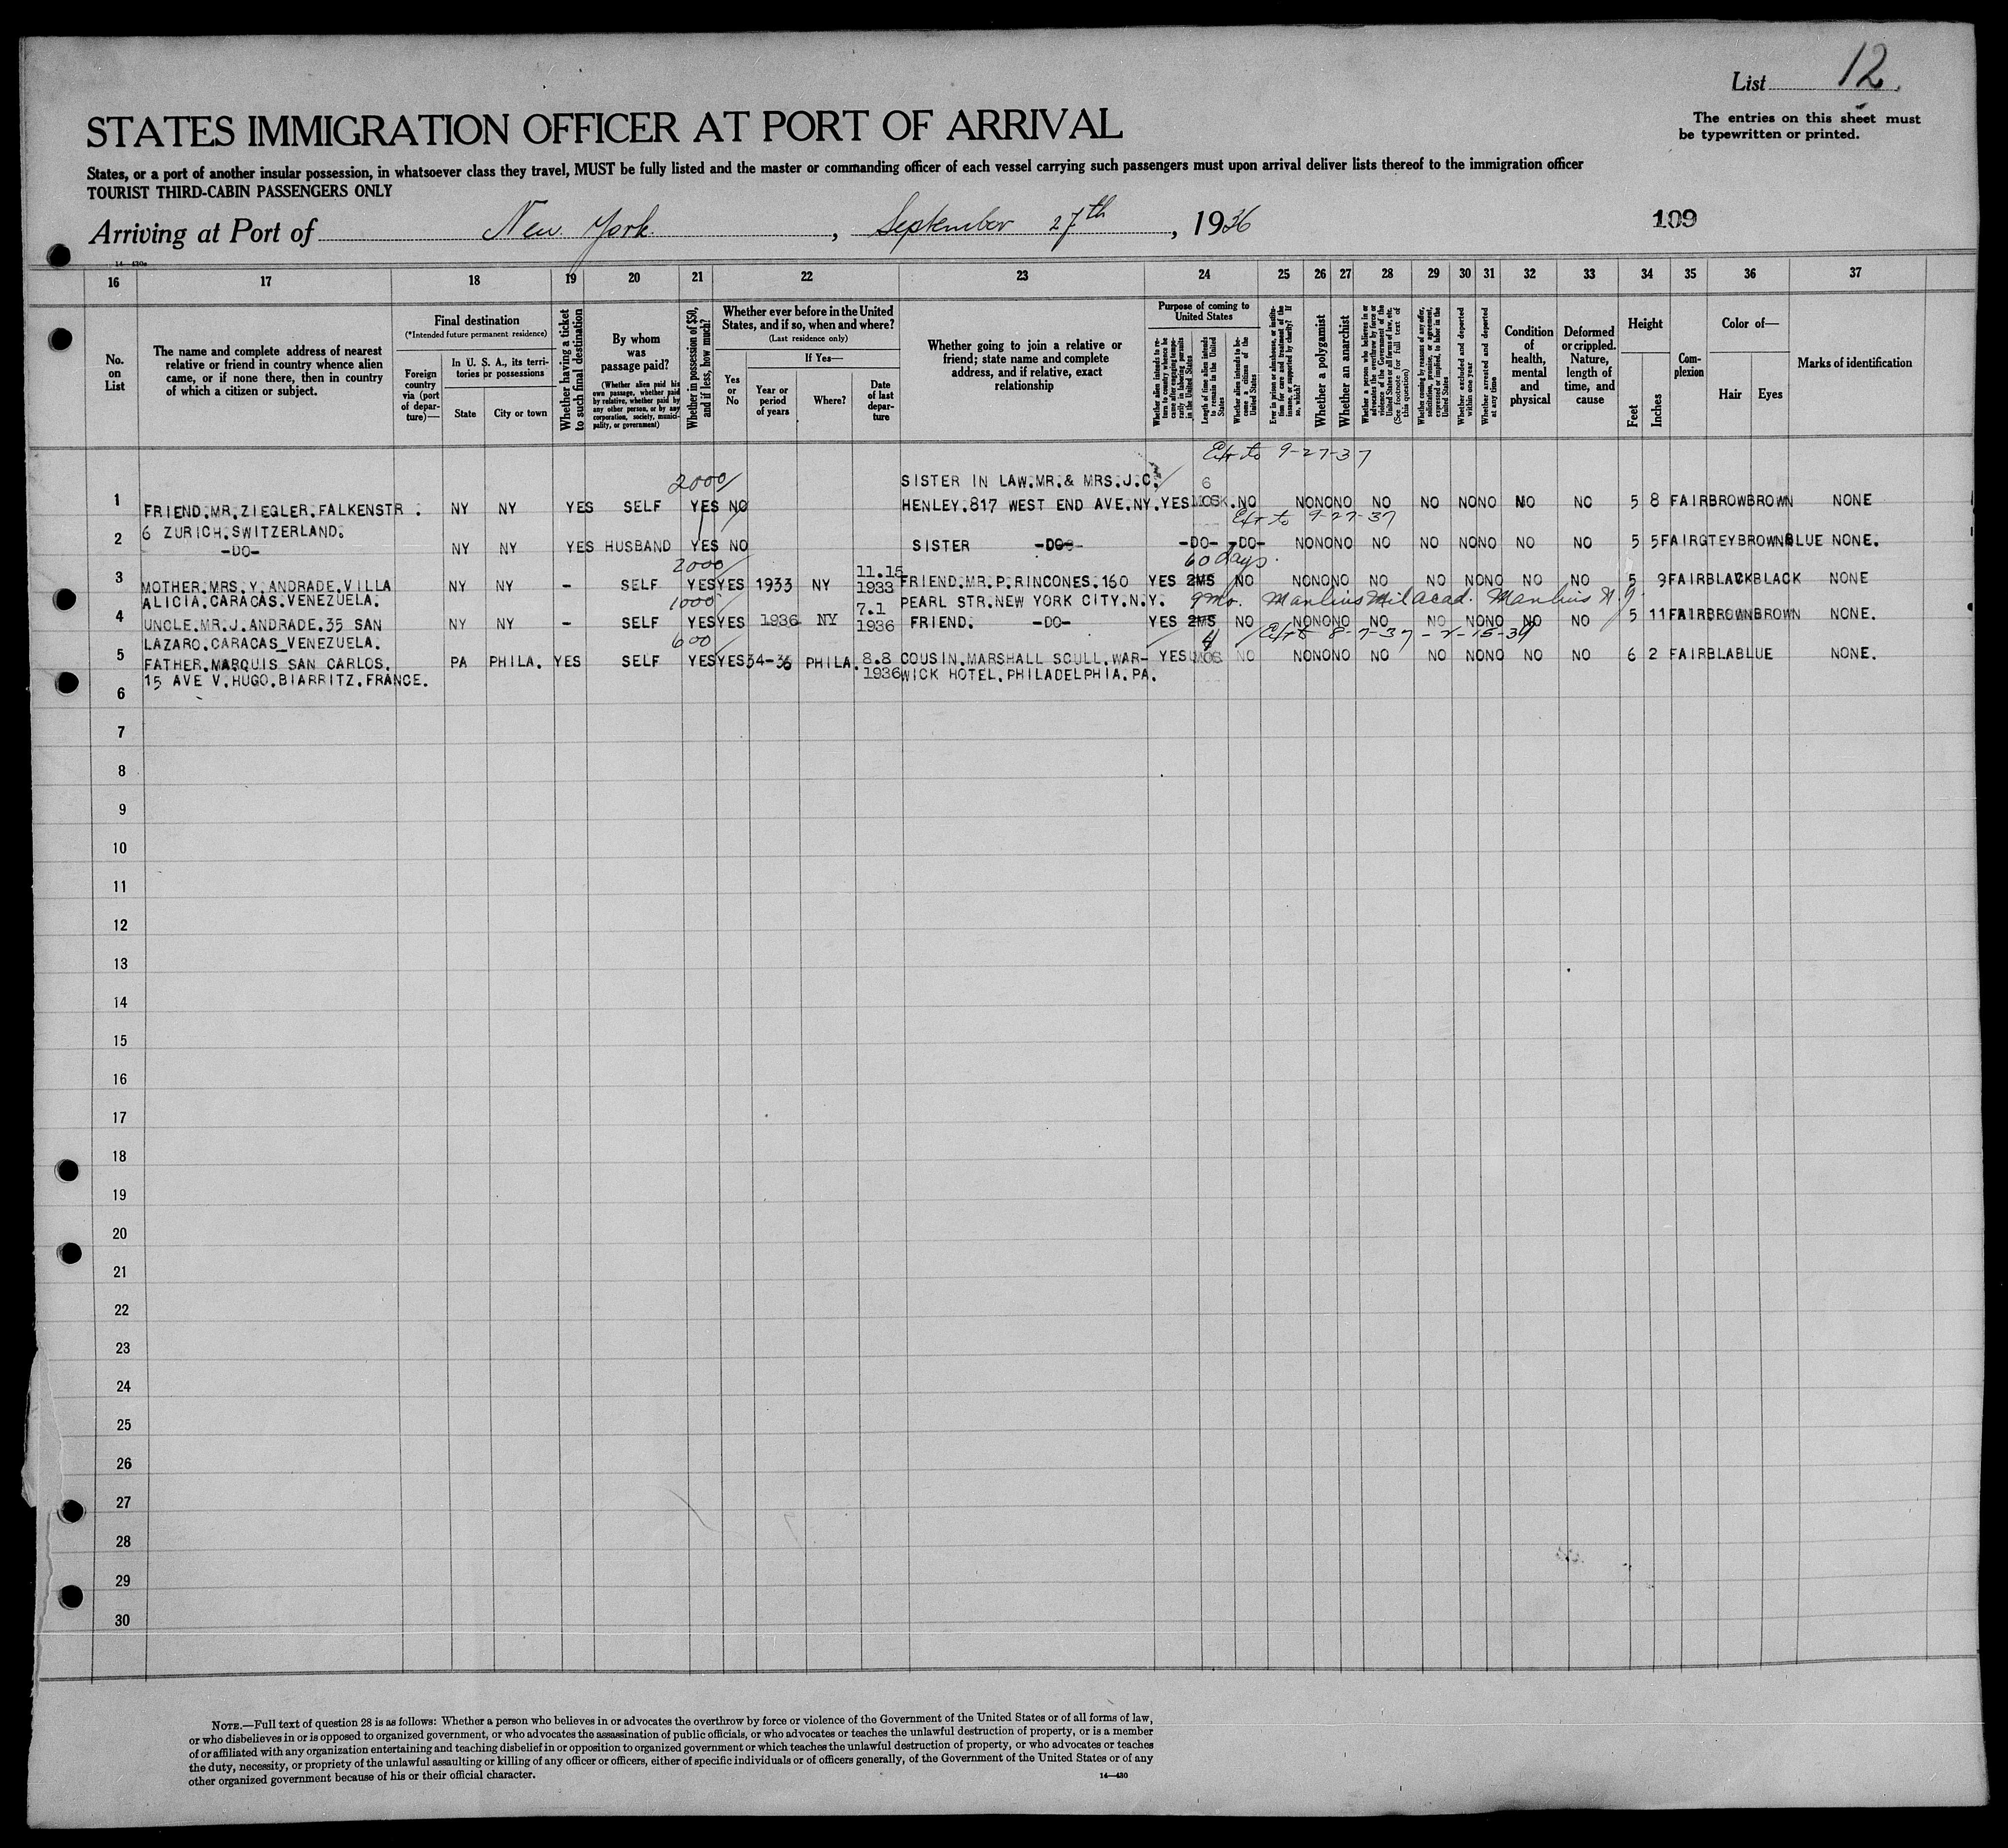 List 12.
The entries on this sheet must
be typewritten or printed.
STATES IMMIGRATION OFFICER AT PORT OF ARRIVAL
States, or a port of another insular possession, in whatsoever class they travel, MUST be fully listed and the master or commanding officer of each vessel carrying such passengers must upon arrival deliver lists thereof to the immigration officer
TOURIST THIRD-CABIN PASSENGERS ONLY
Arriving at Port of New York , September 27th , 1936
109
14—430a
16 17 18 19 20 21 22 23 24 25 26 27 28 29 30 31 32 33 34 35 36 37
No. on List
The name and complete address of nearest
relative or friend in country whence alien
came, or if none there, then in country
of which a citizen or subject.
Final destination
(*Intended future permanent residence)
Foreign country via (port of departure)—
In U. S. A., its territories or possessions
State
City or town
Whether having a ticket to such final destination
By whom was passage paid?
(Whether alien paid his own passage, whether paid by relative, whether paid by any other person, or by any corporation, society, municipality, or government)
Whether in possession of $50, and if less, how much?
Whether ever before in the United States, and if so, when and where?
(Last residence only)
Yes or No
If Yes—
Year or period of years
Where?
Date of last departure
Whether going to join a relative or
friend; state name and complete
address, and if relative, exact
relationship
Purpose of coming to United States
Whether alien intends to return to country whence he came after engaging temporarily in laboring pursuits in the United States
Length of time alien intends to remain in the United States
Whether alien intends to become a citizen of the United States
Ever in prison or almshouse, or institution for care and treatment of the insane, or supported by charity? If so, which?
Whether a polygamist
Whether an anarchist
Whether a person who believes in or advocates the overthrow by force or violence of the Government of the United States or all forms of law, etc. (See footnote for full text of this question)
Whether coming by reasons of any offer, solicitation, promise, or agreement, expressed or implied, to labor in the United States
Whether excluded and deported within one year
Whether arrested and deported at any time
Condition of health, mental and physical
Deformed or crippled. Nature, length of time, and cause
Height
Feet
Inches
Complexion
Color of—
Hair
Eyes
Marks of identification
Ext to 9-27-37
2000 SISTER IN LAW.MR.& MRS.J.C. 6
1 FRIEND.MR.ZIEGLER.FALKENSTR . NY NY YES SELF YES NO HENLEY.817 WEST END AVE.NY. YES MOS NO NO NO NO NO NO NO NO NO NO 5 8 FAIR BROW BROWN NONE
6 ZURICH.SWITZERLAND. Ext to 9-27-37
2 -DO- NY NY YES HUSBAND YES NO SISTER -DO- -DO- -DO- NO NO NO NO NO NO NO NO NO 5 5 FAIR GTEY BROWN BLUE NONE.
2000 11.15 60 days.
3 MOTHER.MRS.Y.ANDRADE.VILLA NY NY - SELF YES YES 1933 NY 1933 FRIEND.MR.P.RINCONES.160 YES 2MS NO NO NO NO NO NO NO NO NO NO 5 9 FAIR BLACK BLACK NONE
ALICIA.CARACAS.VENEZUELA. 1000 7.1 PEARL STR.NEW YORK CITY.N.Y. 9 mo. Manlius Mil acad. Manlius N.Y.
4 UNCLE.MR.J.ANDRADE.35 SAN NY NY - SELF YES YES 1936 NY 1936 FRIEND. -DO- YES 2MS NO NO NO NO NO NO NO NO NO NO 5 11 FAIR BROWN BROWN NONE.
LAZARO.CARACAS_VENEZUELA. 600 4 Ext 8-7-37
5 FATHER.MARQUIS SAN CARLOS. PA PHILA. YES SELF YES YES 34-36 PHILA. 8.8 COUSIN.MARSHALL SCULL.WAR- YES MOS NO NO NO NO NO NO NO NO NO NO 6 2 FAIR BLA BLUE NONE.
15 AVE V.HUGO.BIARRITZ.FRANCE. 1936 WICK HOTEL.PHILADELPHIA.PA.
6
7
8
9
10
11
12
13
14
15
16
17
18
19
20
21
22
23
24
25
26
27
28
29
30
NOTE.—Full text of question 28 is as follows: Whether a person who believes in or advocates the overthrow by force or violence of the Government of the United States or of all forms of law,
or who disbelieves in or is opposed to organized government, or who advocates the assassination of public officials, or who advocates or teaches the unlawful destruction of property, or is a member
of or affiliated with any organization entertaining and teaching disbelief in or opposition to organized government or which teaches the unlawful destruction of property, or who advocates or teaches
the duty, necessity, or propriety of the unlawful assaulting or killing of any officer or officers, either of specific individuals or of officers generally, of the Government of the United States or of any
other organized government because of his or their official character.
14—430